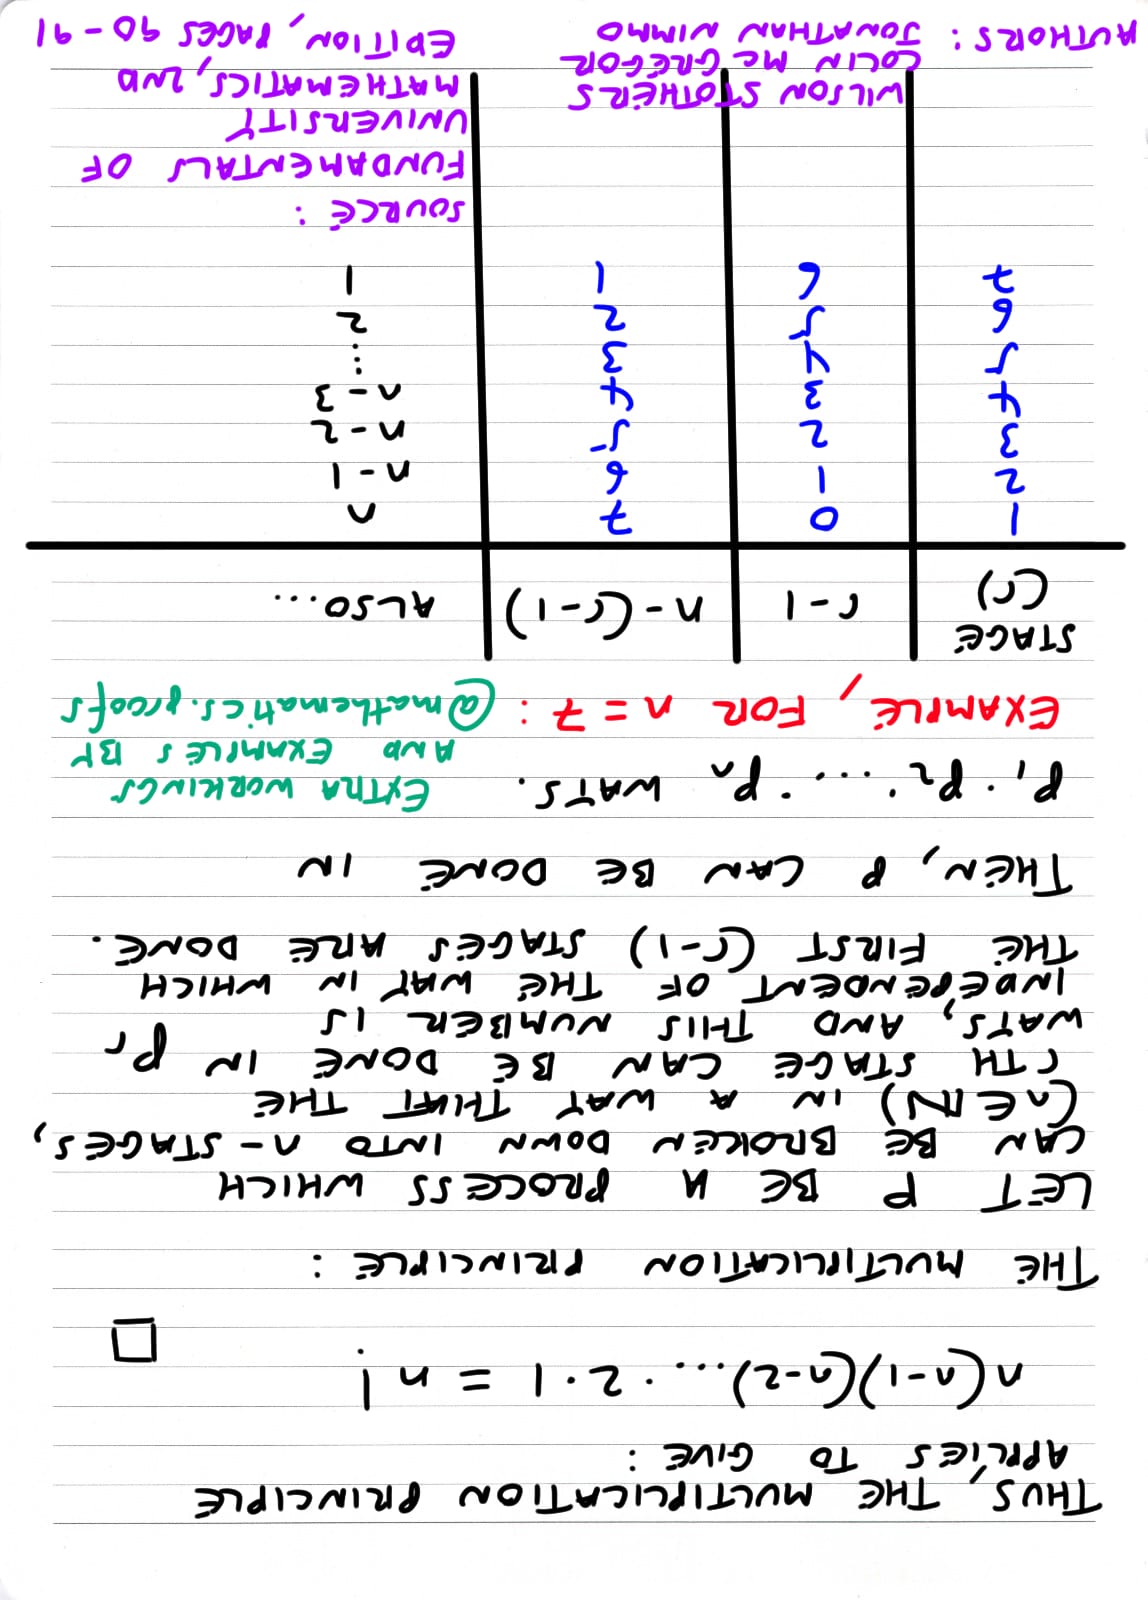 THUS, THE MULTIPLICATION PRINCIPLE
APPLIES TO GIVE :
n(n-1)(n-2)... · 2 · 1 = n!
□
THE MULTIPLICATION PRINCIPLE :
LET P BE A PROCESS WHICH
CAN BE BROKEN DOWN INTO n-STAGES,
(n∈ℕ) IN A WAY THAT THE
rTH STAGE CAN BE DONE IN pr
WAYS, AND THIS NUMBER IS
INDEPENDENT OF THE WAY IN WHICH
THE FIRST (r-1) STAGES ARE DONE.
THEN, P CAN BE DONE IN
p1 · p2 · ... · pn WAYS.
EXTRA WORKINGS
AND EXAMPLES BY
@mathematics.proofs
EXAMPLE, FOR n = 7 :
STAGE (r) r-1 n-(r-1) ALSO...
1 0 7 n
2 1 6 n-1
3 2 5 n-2
4 3 4 n-3
5 4 3 ⋮
6 5 2 2
7 6 1 1
SOURCE :
FUNDAMENTALS OF
UNIVERSITY
MATHEMATICS, 2ND
EDITION, PAGES 90-91
WILSON STOTHERS
COLIN MCGREGOR
AUTHORS : JONATHAN NIMMO